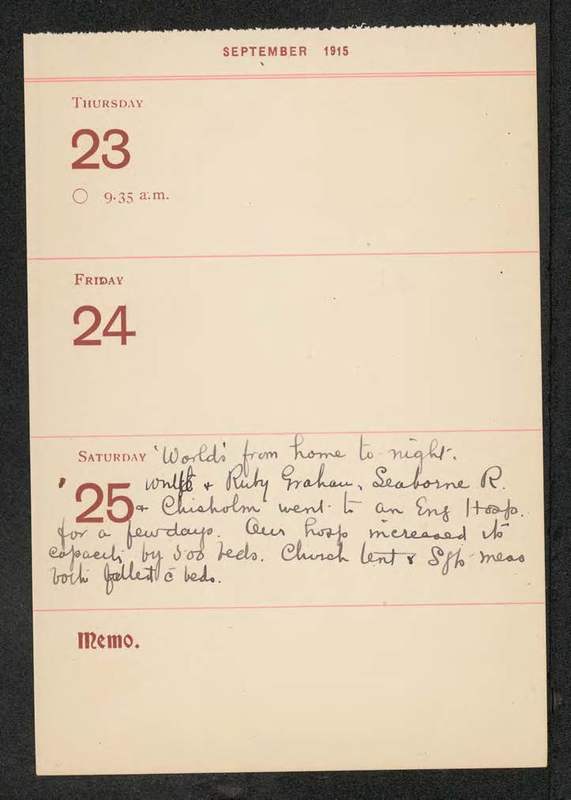 SEPTEMBER 1915
THURSDAY
23
9.35 a.m.
FRIDAY
24
SATURDAY 'Worlds' from home to night.
25 & Ruby Graham, Seaborne R.
& Chisholm went to an Eng Hosp.
for a few days. Our hosp increased its
capacity by 500 beds. Church tent & Sgts mess
both filled c̄ beds.
Memo.